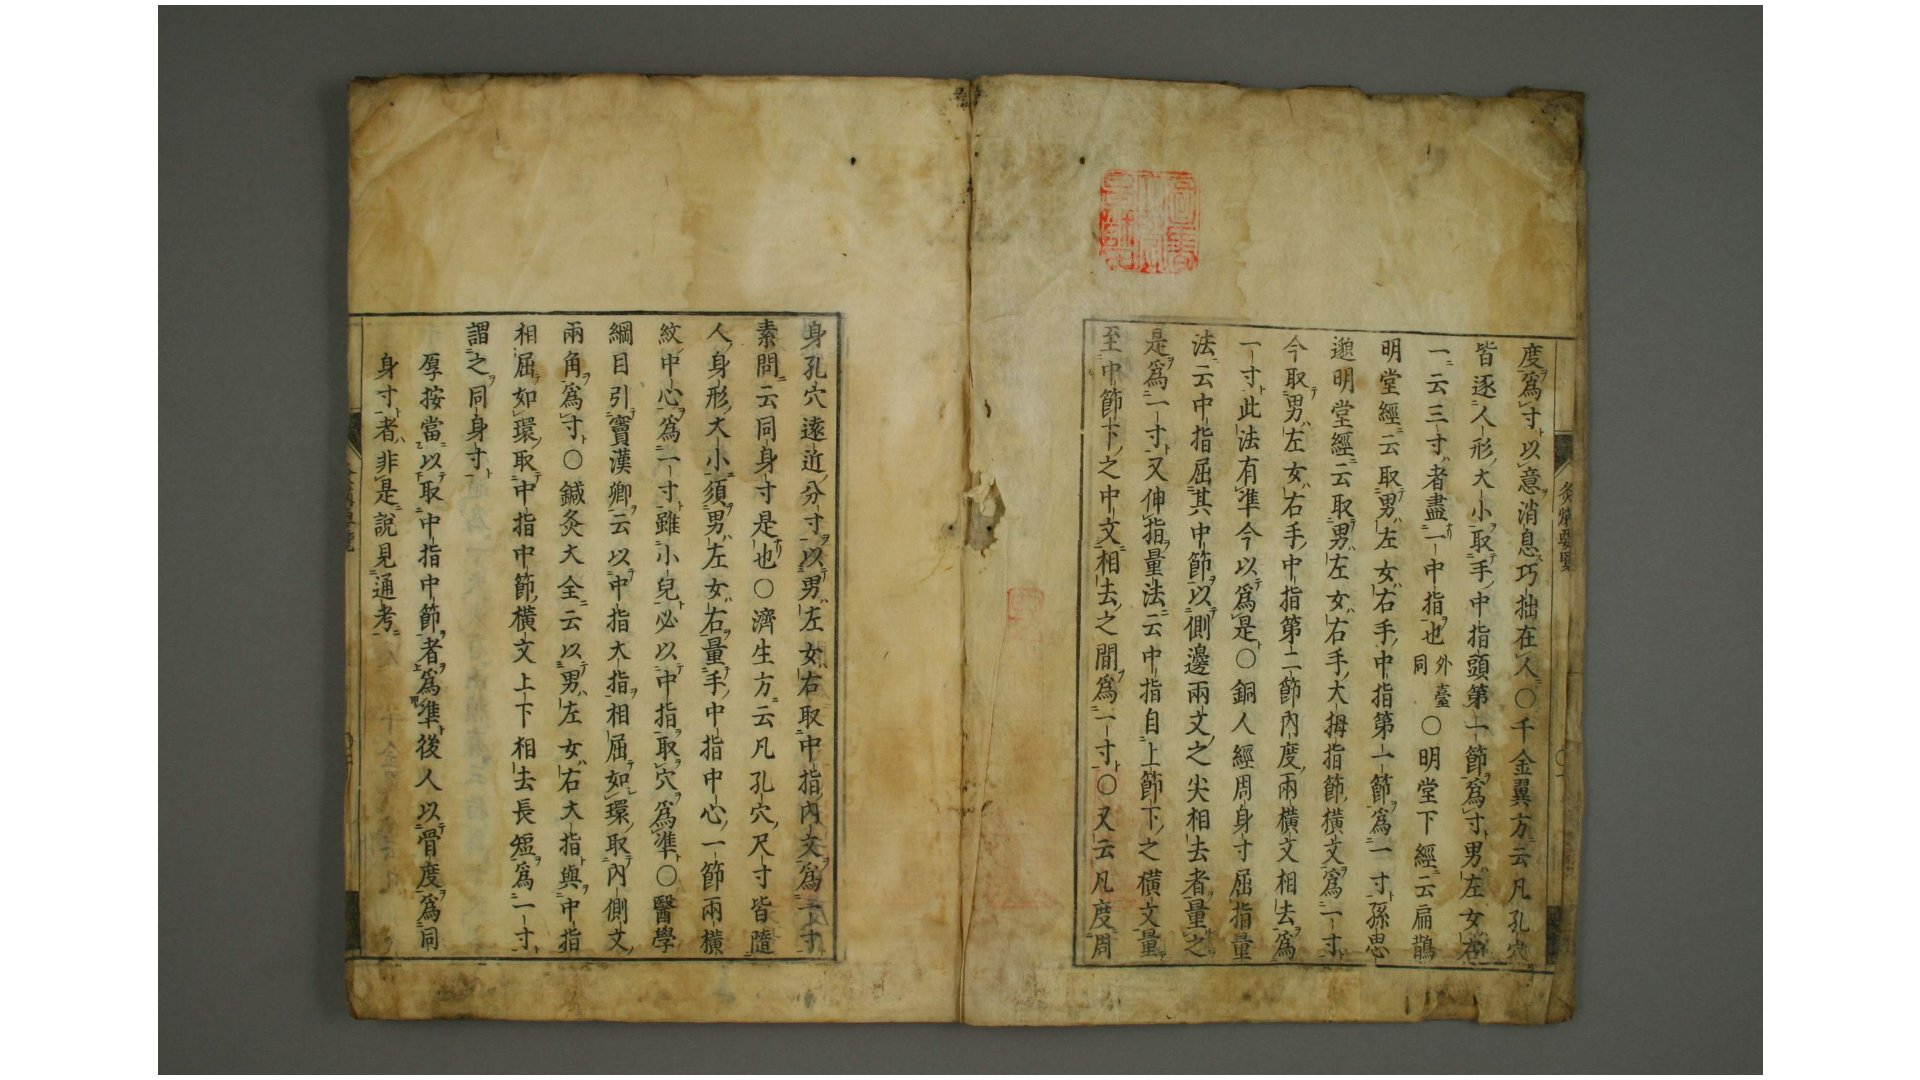 度為寸以意消息巧拙在人〇千金翼方云凡孔穴
皆逐人形大小取手中指頭第一節為寸男左女右
一云三寸者盡一中指也外臺同〇明堂下經云扁鵲
明堂經云取男左女右手中指第一節為一寸孫思
邈明堂經云取男左女右手大拇指節橫文為一寸
今取男左女右手中指第二節內度兩橫文相去為
一寸此法有準今以為是〇銅人經周身寸屈指量
法云中指屈其中節以側邊兩文之尖相去者量之
是為一寸又伸指量法云中指自上節下之橫文量
至中節下之中文相去之間為一寸〇又云凡度周
身孔穴遠近分寸以男左女右取中指內文為一寸
素問云同身寸是也〇濟生方云凡孔穴尺寸皆隨
人身形大小須男左女右量手中指中心一節兩橫
紋中心為一寸雖小兒必以中指取穴為準〇醫學
綱目引竇漢卿云以中指大指相屈如環取內側文
兩角為寸〇鍼灸大全云以男左女右大指與中指
相屈如環取中指中節橫文上下相去長短為一寸
謂之同身寸
厚按當以取中指中節者為準後人以骨度為同
身寸者非是說見通考
灸焫要覽